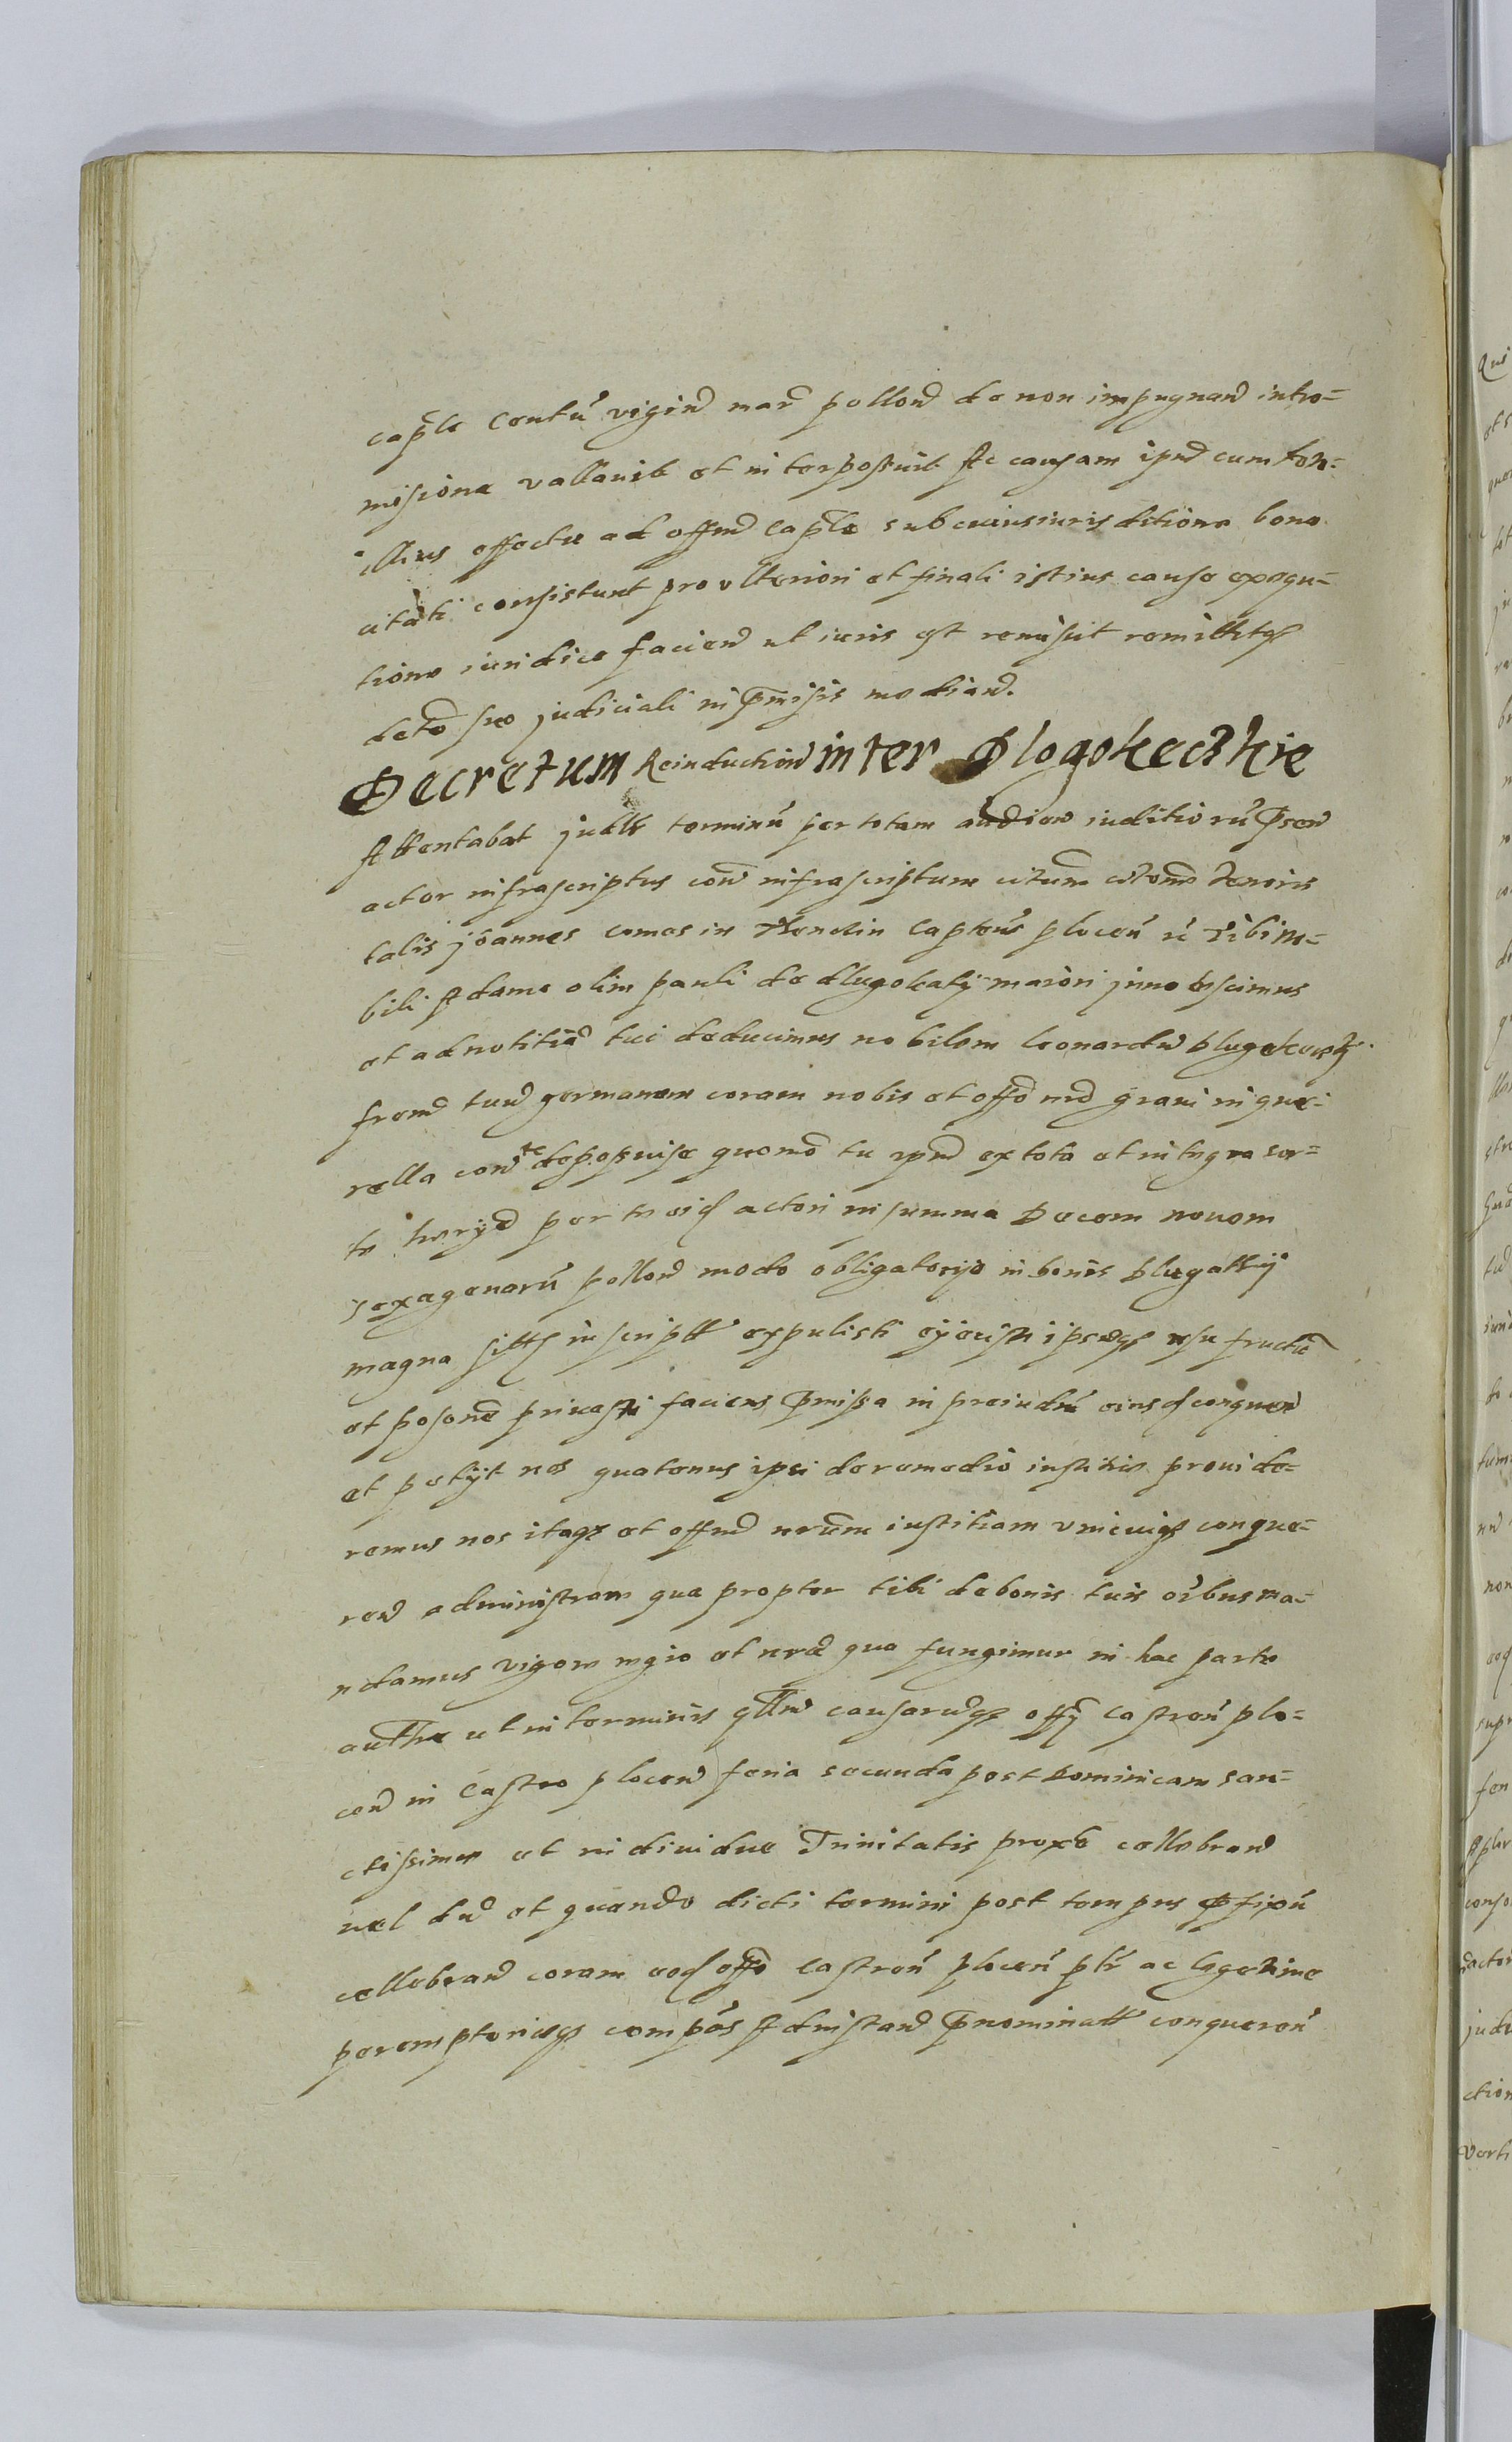 caple Centu vigind mar pollond de non impugnand intro=
misione vallavit et interposuit Ac causam ipud cum ton=
illius effectu ad offm caple sub cuius iurisditione bona
citati consistunt pro ulteriori et finali istius cause exequ=
tione iuridice faciend ut iuris est remisit remittitqz
deto suo judiciali in pmisis mediand.
Decretum Reinduction inter Dlogokeczkie
Attentabat judlr terminu per totam audien iuditioru psend
actor infrascriptus cond infrascriptum citum citone tenoris
talis joannes comes in captens plocen tibi no=
bili Adame olim pauli de dlugokaty maiori innotescimus
et ad notitia tui deducimus nobilem leonardu dlugokeczky
frem tuu germanem coram nobis et offo nro gravi in que=
rella con te deposuise quomo tu ipm ex tota et integra sor=
te per te eid actori in summa Decem novem
sexagenaru pollond modo obligatorio in bonis dlugatky
magna sitts inscriptt expulisti eijecisti ipsuqz usu fructu
et posone privasti faciens pmissa in preiudm eiusd conquen
et petijt nos quatenus ipsi de remedio iustitie provide=
remus nos itaqz et offm nrum iustitiam unicuiqz conque=
ren administram qua propter tibi de bonis tuis oibus ma=
ndamus vigore et nra qua fungimur in hac parte
authe ut in terminis qllm causaruqz offy castren plo=
cen in Castro plocen feria secunda post dominicam san=
ctissime et individue Trinitatis proxe cellebrand
vel du et quando dicti termini post tempus pfixu
cellebrand coram eod offo castren plocen plr ac legetime
peremptorieqz compas Ad instand pnominatt conqueren